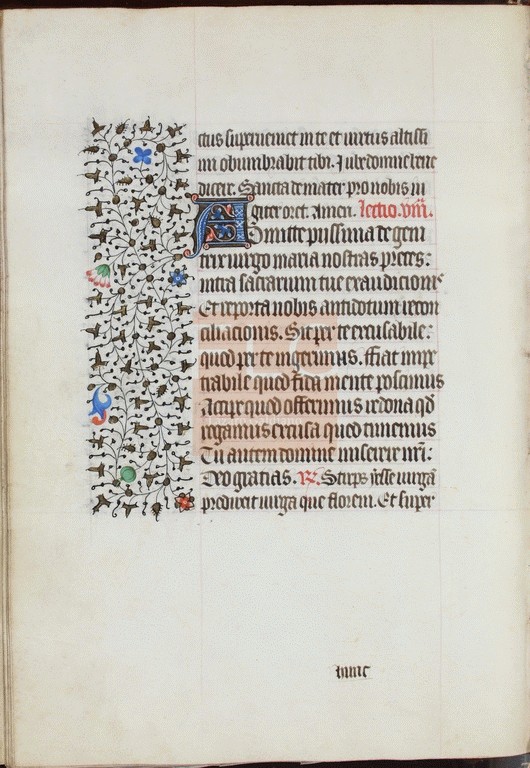 ctus superveniet in te et virtus altissi
mi obumbrabit tibi. Iube domine bene
dicere. Sancta dei mater pro nobis iu
giter oret. Amen. lectio .viii.
Admitte piissima dei geni
trix virgo maria nostras preces:
intra sacrarium tue exaudicionis
Et reporta nobis antidotum recon
ciliacionis. Sit per te excusabile:
quod per te ingerimus. ffiat impe
trabile quod fida mente poscimus
Accipe quod offerimus redona qd
rogamus excusa quod timemus
Tu autem domine miserere nri:
Deo gratias. R. Stirps yesse virgã
produxit virga que florem. Et super
hunc